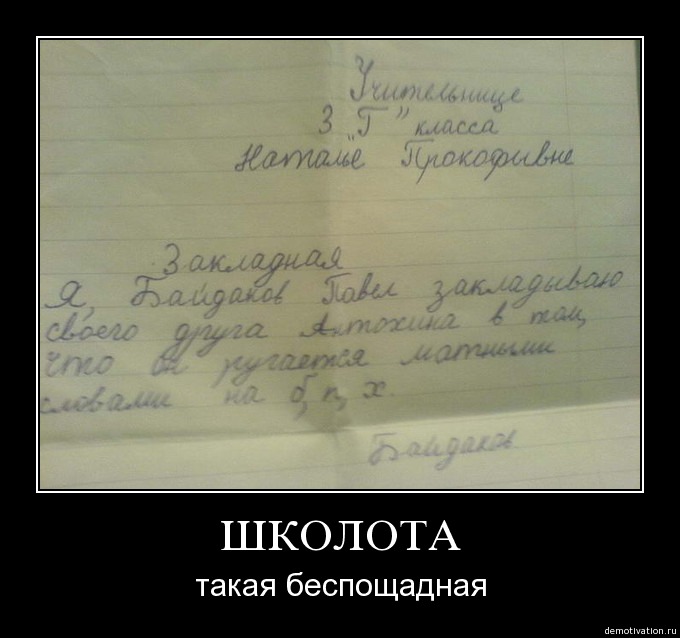 Учительнице
3 "Г" класса
Наталье Прокофивне
Закладная
Я, Байдаков Павел закладываю
своего друга Алтохина в том,
что он ругается матными
словами на б, п, х.
Байдаков
ШКОЛОТА
такая беспощадная
demotivation.ru